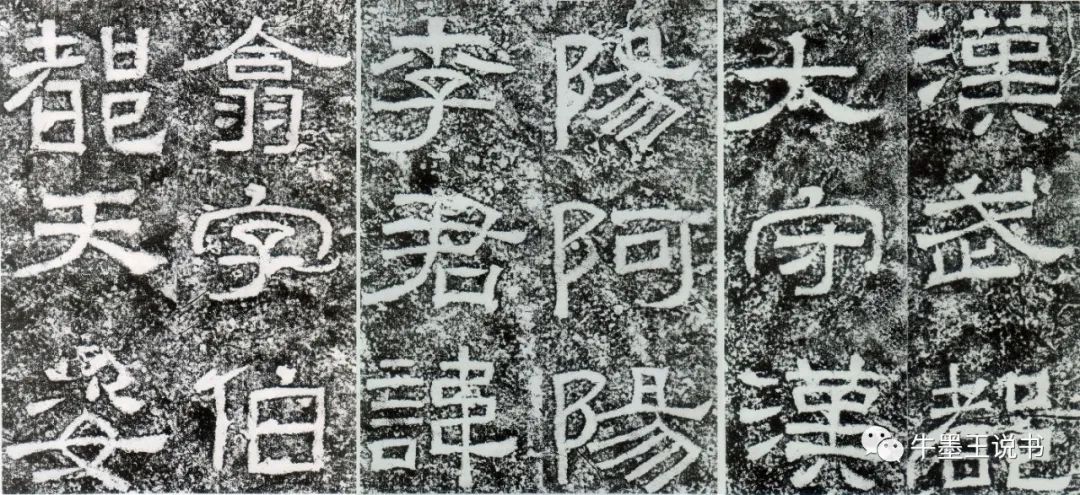 漢武都
太守漢
陽阿陽
李君諱
翕字伯
都天姿
牛墨王说书